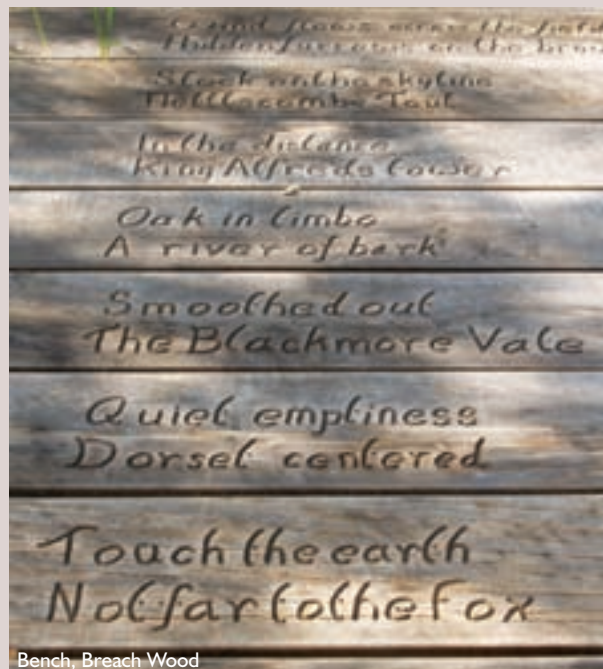 across the field
Hidden furrows on the brow
Stock on the skyline
Nettlecombe Tout
In the distance
King Alfreds tower
Oak in limbo
A river of bark
Smoothed out
The Blackmore Vale
Quiet emptiness
Dorset centered
Touch the earth
Not far to the Fox
Bench, Breach Wood